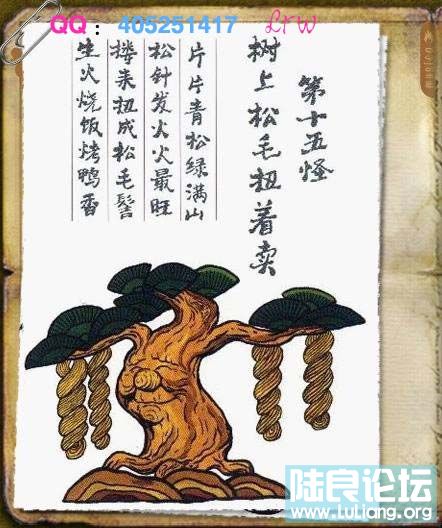 QQ：405251417 Lrw
第十五怪
树上松毛扭着卖
片片青松绿满山
松针发火火最旺
搂来扭成松毛髻
生火烧饭烤鸭香
陆良论坛
www.luliang.org